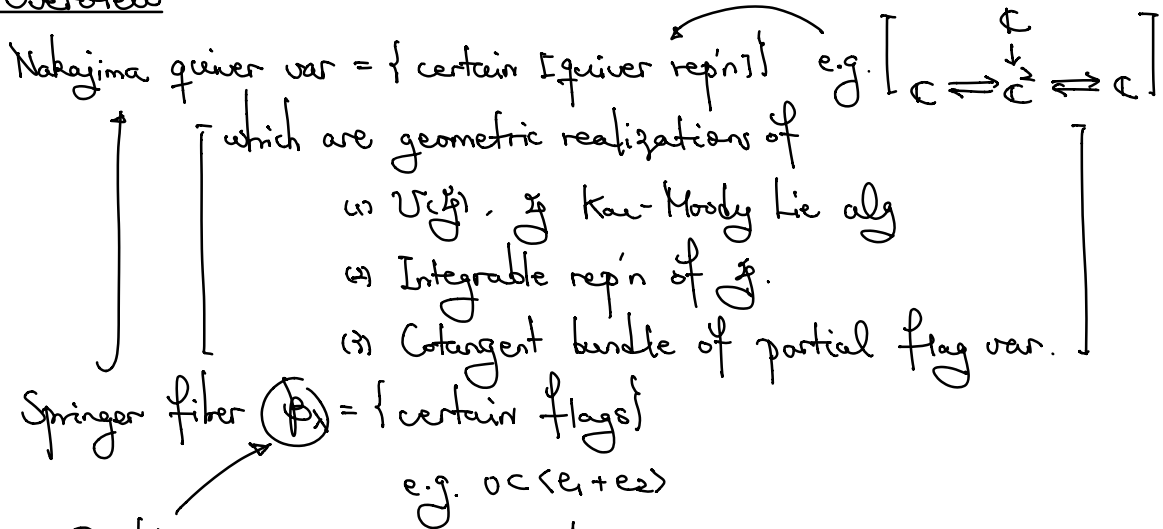 Overview
Nakajima quiver var = { certain [quiver rep'n]} e.g. [ ℂ ⇌ ℂ² ⇌ ℂ ]
ℂ
↓
which are geometric realizations of
(1) U(𝔤), 𝔤 Kac-Moody Lie alg
(2) Integrable rep'n of 𝔤.
(3) Cotangent bundle of partial flag var.
Springer fiber 𝓑_λ = {certain flags}
e.g. 0⊂<e₁+e₂>